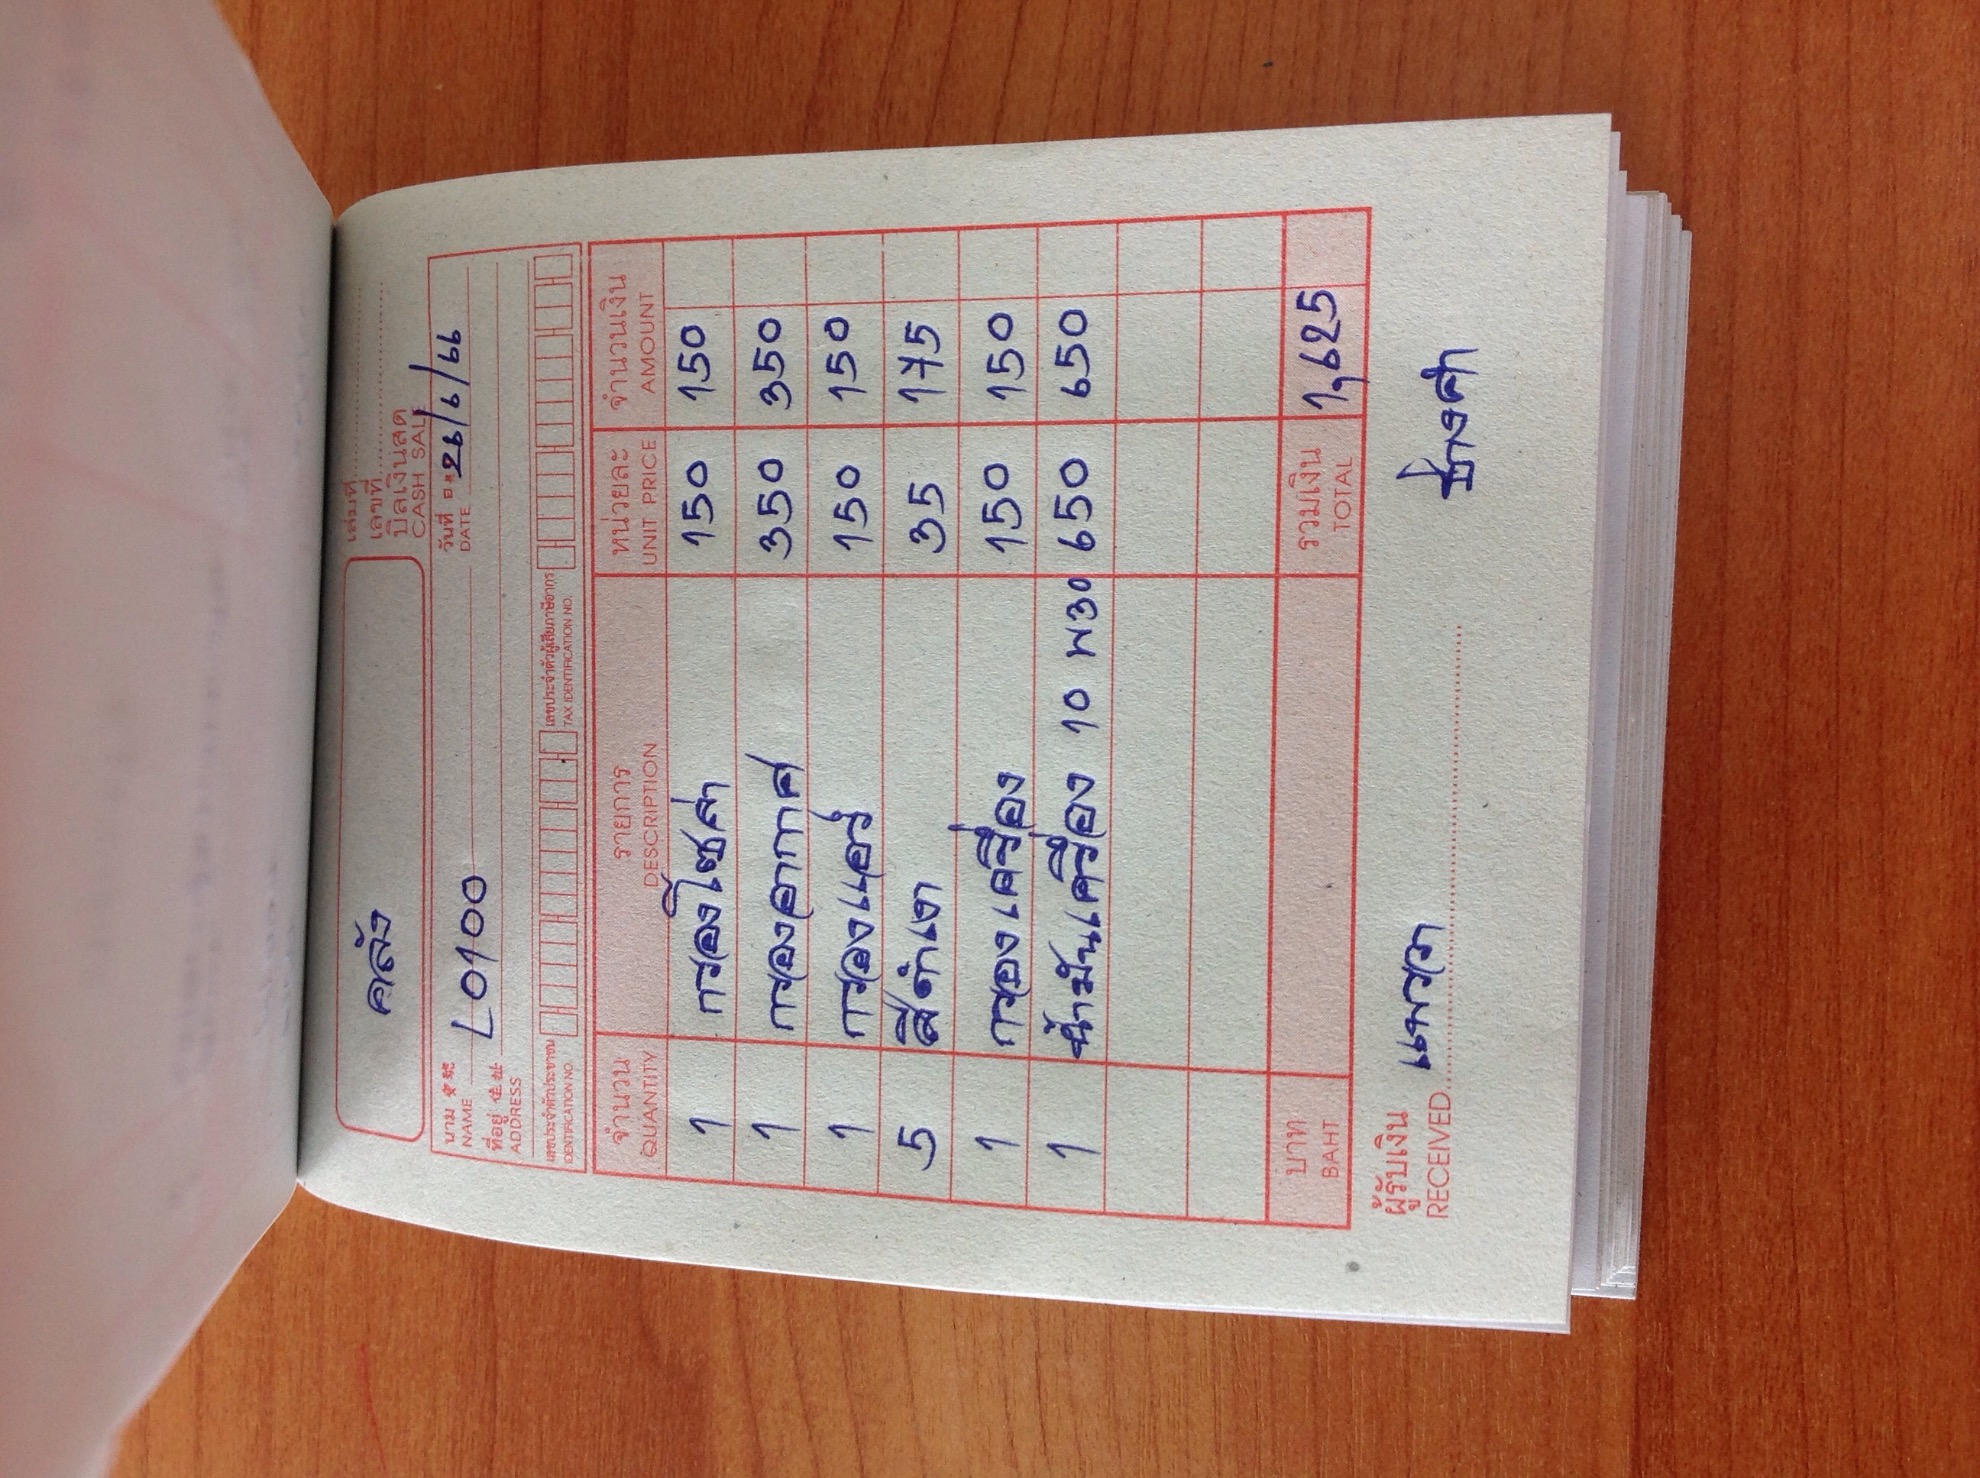 คลัง
เล่มที่
เลขที่
บิลเงินสด
CASH SALE
นาม
NAME
L0100
วันที่
DATE
26/6/66
ที่อยู่
ADDRESS
เลขประจำตัวประชาชน
IDENTIFICATION NO.
เลขประจำตัวผู้เสียภาษีอากร
TAX IDENTIFICATION NO.
จำนวน รายการ หน่วยละ จำนวนเงิน
QUANTITY DESCRIPTION UNIT PRICE AMOUNT
1 กรองโซล่า 150 150
1 กรองอากาศ 350 350
1 กรองแอร์ 150 150
5 สีดำเงา 35 175
1 กรองเครื่อง 150 150
1 น้ำมันเครื่อง 10 W30 650 650
บาท รวมเงิน 1,625
BAHT TOTAL
ผู้รับเงิน
RECEIVED
แพรวา